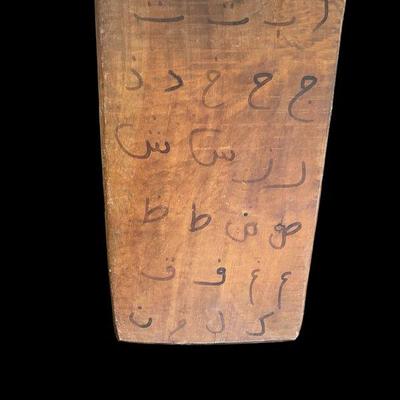 ا ب ت ث
ج ح خ د ذ
ر ز س ش
ص ض ط ظ
ع غ ف ق
ك ل م ن